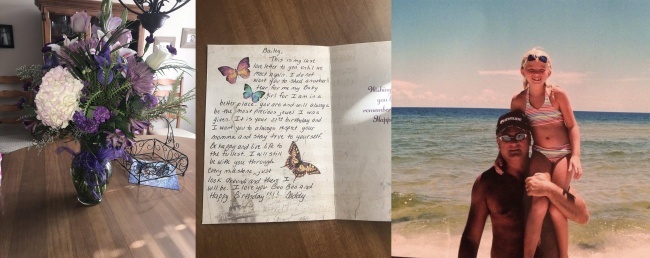 Bailey,
This is my last
love letter to you until we
meet again. I do not
want you to shed another
tear for me my Baby
Girl for I am in a
better place. you are and will always
be the most precious jewel I was
given. It is your 21st birthday and
I want you to always respect your
momma and stay true to yourself.
Be happy and live life to
the fullest. I will still
be with you through
every milestone, just
look around and there I
will be. I love you Boo Boo and
Happy Birthday!!!! Daddy
Wishing
you